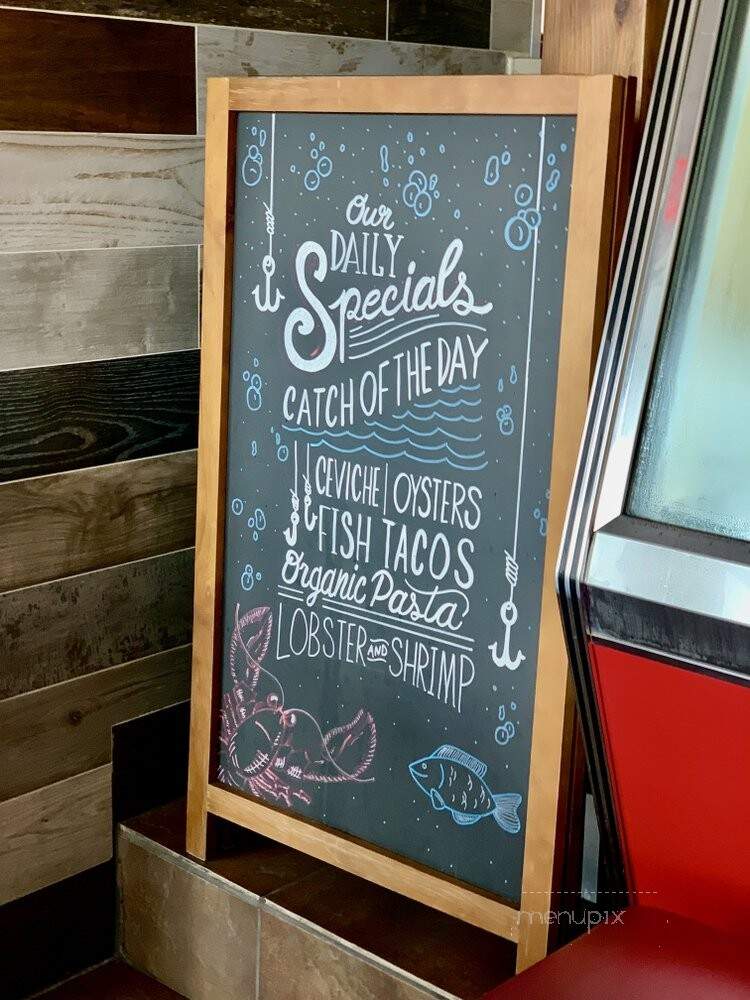 Our
DAILY
Specials
CATCH OF THE DAY
CEVICHE | OYSTERS
FISH TACOS
Organic Pasta
LOBSTER AND SHRIMP
menupix